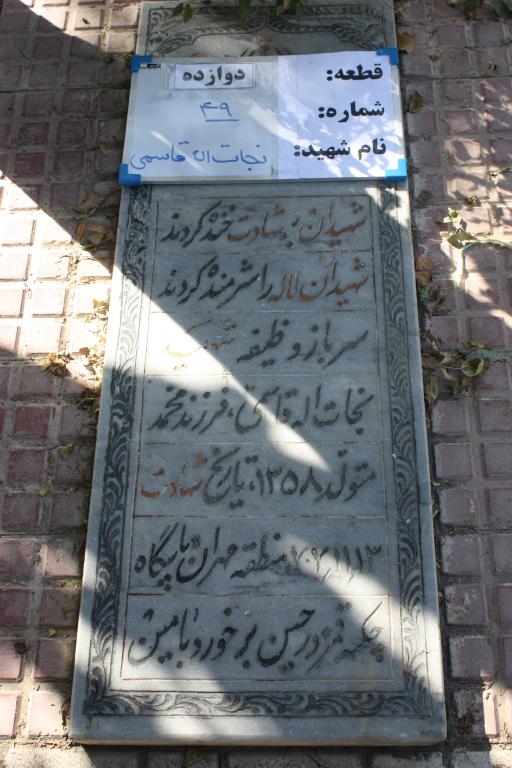 قطعه: دوازده
شماره: ۴۹
نام شهید: نجات اله قاسمی
شهیدان بر شهادت خنده کردند
شهیدان لاله را شرمنده کردند
سرباز وظیفه شهید
نجات اله قاسمی، فرزند محمد
متولد ۱۳۵۸، تاریخ شهادت
منطقه مهران پاسگاه
چکمه قرمز در حین برخورد با مین